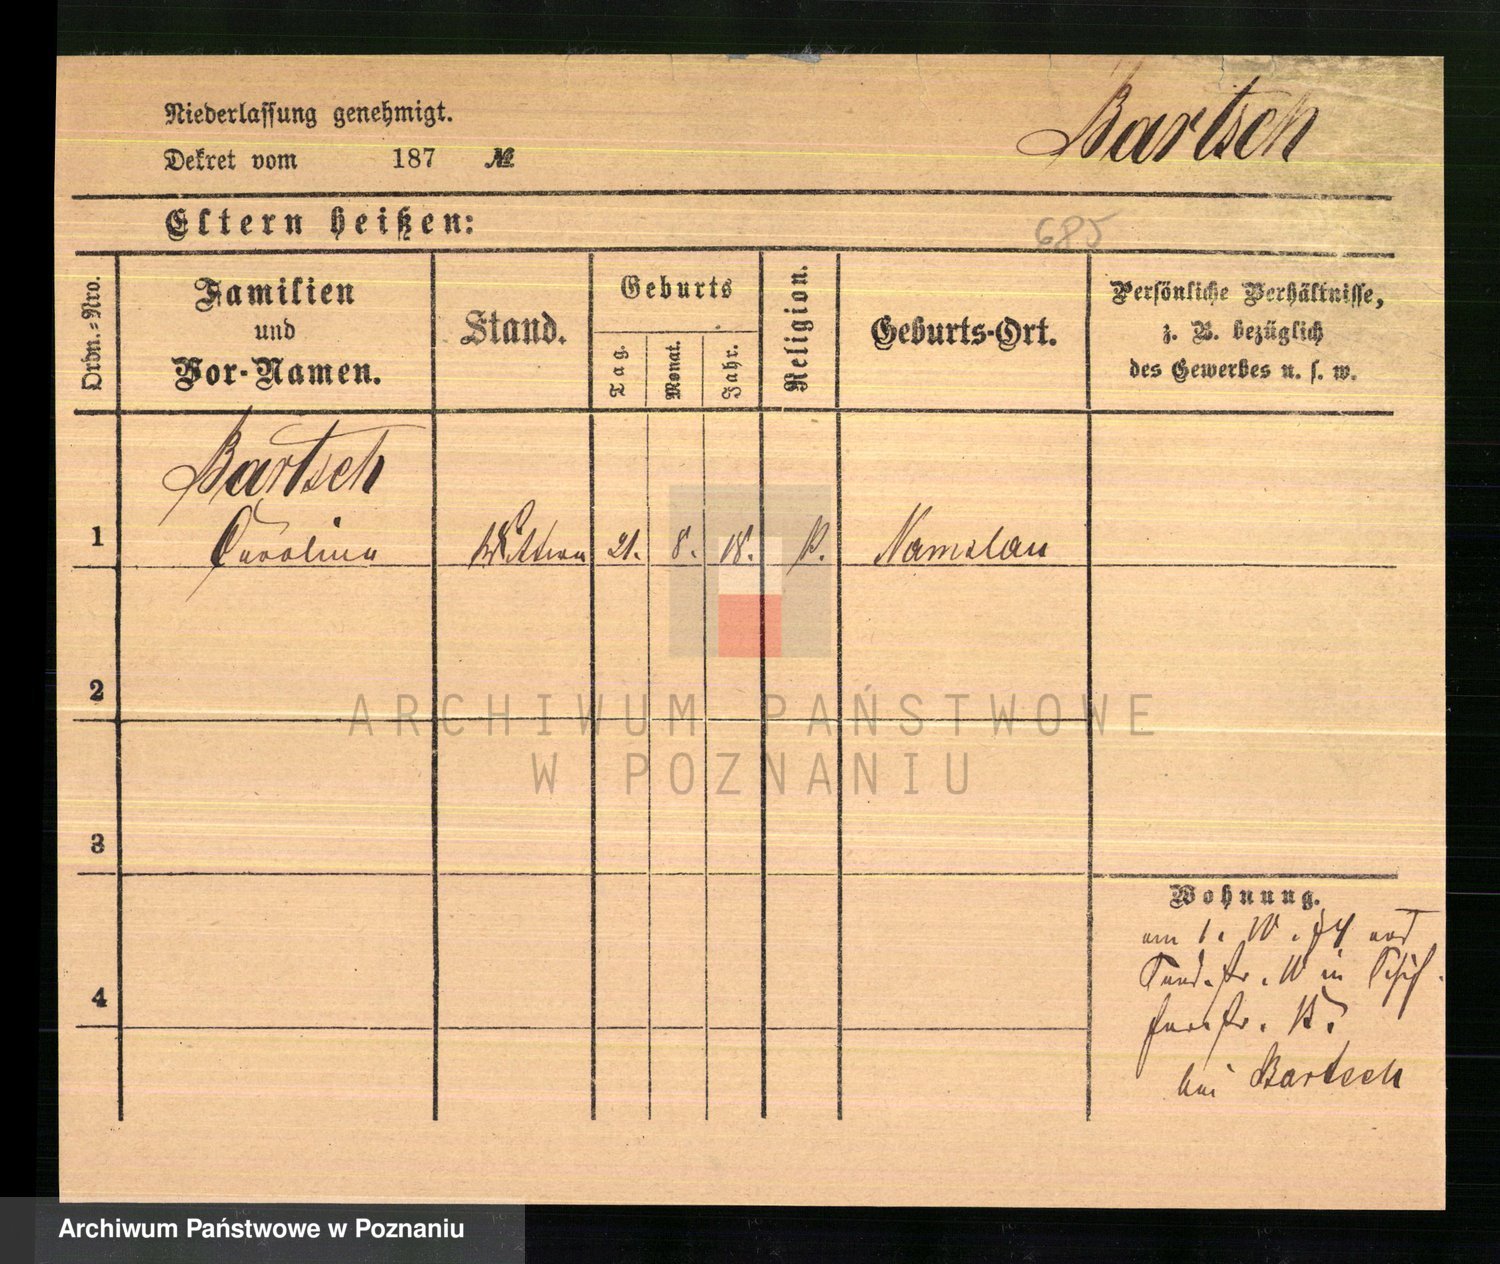 Niederlassung genehmigt.
Bartsch
Dekret vom 187 №
Eltern heißen:
685
Ordn.=Nro.
Familien
und
Vor-Namen.
Stand.
Geburts
Tag.
Monat.
Jahr.
Religion.
Geburts-Ort.
Persönliche Verhältnisse,
z. B. bezüglich
des Gewerbes u. s. w.
Bartsch
1 Carolina Wittwe 21. 8. 18. Namslau
2
3
4
Wohnung.
am 1.
in
bei Bartsch
ARCHIWUM PAŃSTWOWE
W POZNANIU
Archiwum Państwowe w Poznaniu